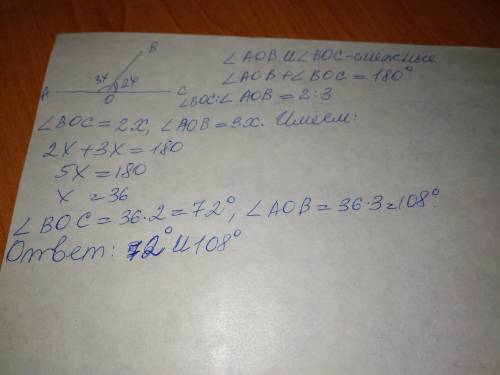 B
3x 2x
A O C
∠AOB и ∠BOC - смежные
∠AOB + ∠BOC = 180°
∠BOC : ∠AOB = 2 : 3
∠BOC = 2x, ∠AOB = 3x. Имеем:
2x + 3x = 180
5x = 180
x = 36
∠BOC = 36·2 = 72°, ∠AOB = 36·3 = 108°.
Ответ: 72° и 108°